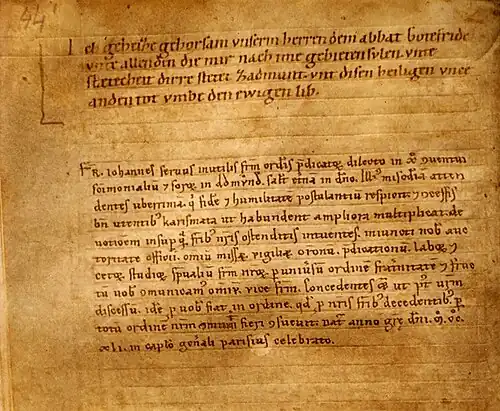 44
Ich geheize gehorsam unserm herren dem abbat Gotefride
unte allen den die mir nach ime gebieten sulen. unte
stetecheit dirre stete zadmunt. unt disen heiligen unce
an den tot umbe den ewigen lib.
Fr. Iohannes servus inutilis frm ordis pdicatoꝝ dilecto in xo ꝯventui
scimonialiū ⁊ soroꝝ in
dentes uberrima. q̄ fide ⁊ humilitate postulantiū respicit. ⁊ ꝯcessis
bn̄ utentibꝰ karismata ut habundent ampliora multiplicat. de
votionem insup q̄ frībꝰ nr̄is ostenditis intuentes. iniuncti nob auc
toritate officii. omiū missaꝝ. vigiliaꝝ oronū. pdicationū. laboꝝ ⁊
ceteroꝝ studioꝝ spualiū frm nr̄oꝝ p universū ordinē frat̄nitatē ⁊
tū vob ꝯmunicam omīꝝ vice frm. Concedentes ut pt urm̄
discessū. idē p vob fiat in ordine. qd p nr̄is frībꝰ decedentibꝰ p
totū ordinē nr̄m fieri ꝯsuevit. Dat̄ anno gr̄e dn̄i. m̊. cc̊.
xli. in caplo gen̄ali parisius celebrato.